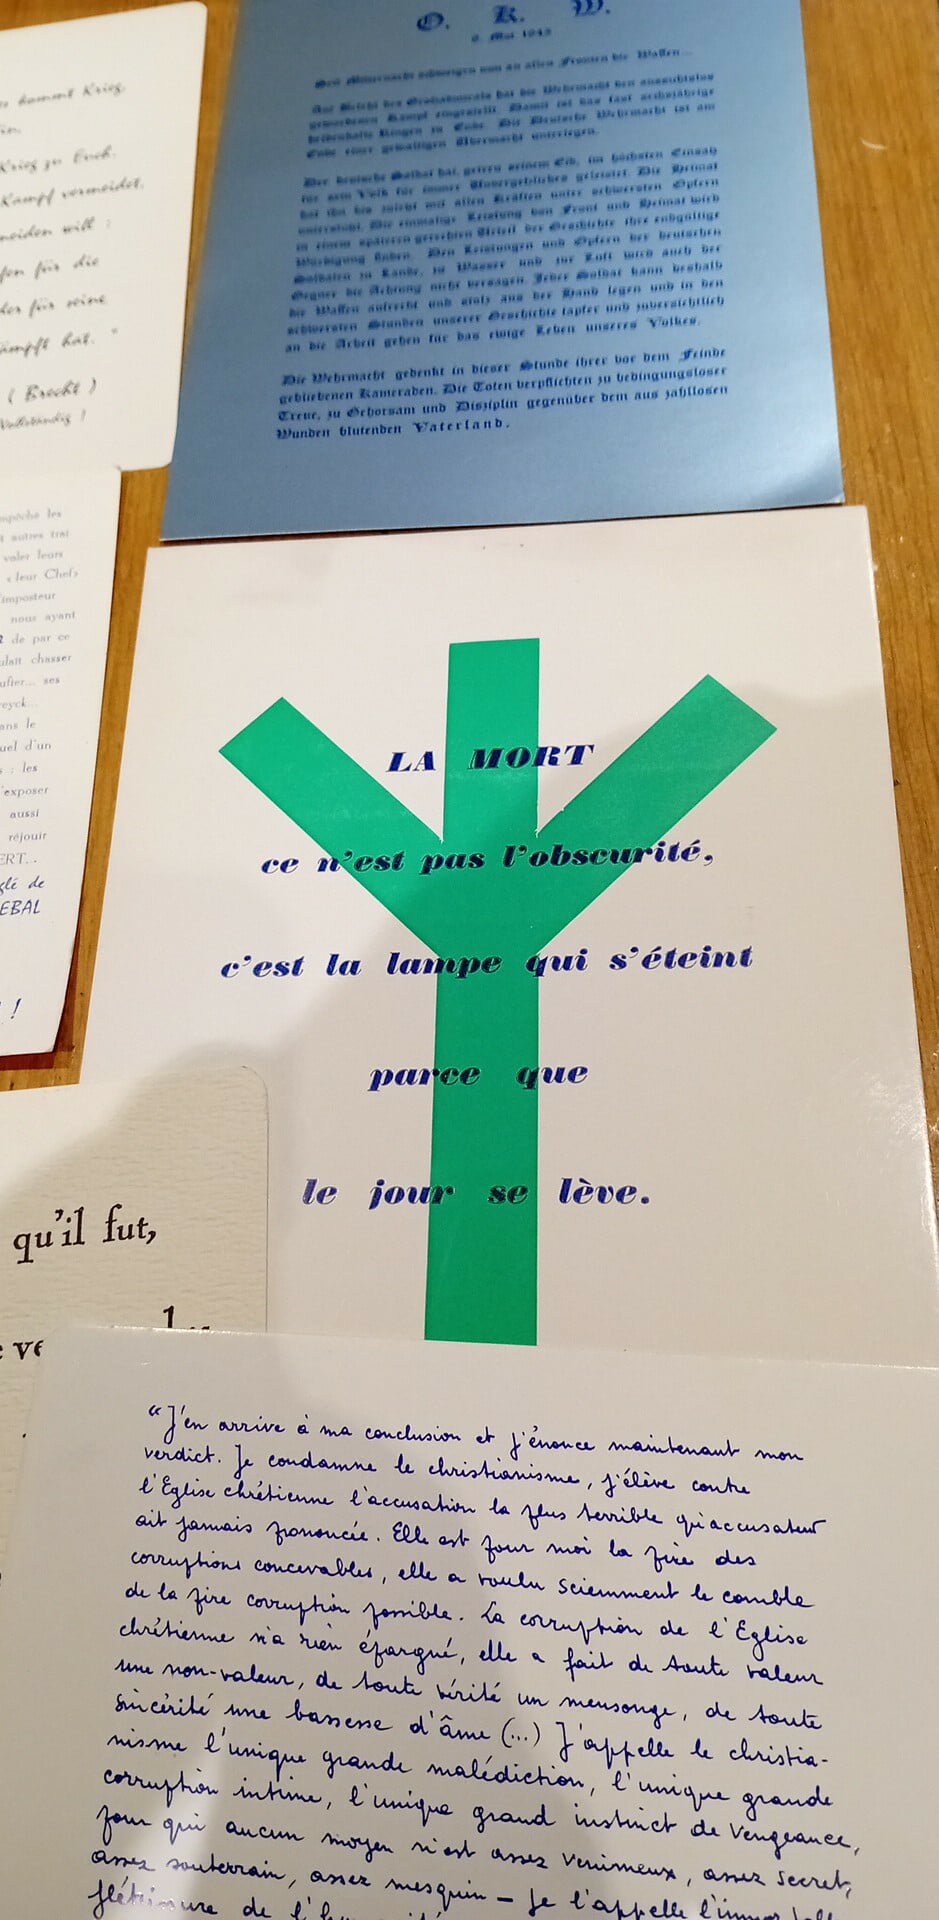 kommt Krieg
Krieg zu Euch.
Kampf vermeidet,
meiden will :
für die
für seine
hat. "
( Brecht )
Vollständig !
O. K. W.
9. Mai 1945
Seit Mitternacht schweigen nun an allen Fronten die Waffen...
Auf Befehl des Großadmirals hat die Wehrmacht den aussichtslos
gewordenen Kampf eingestellt. Damit ist das fast sechsjährige
heldenhafte Ringen zu Ende. Die Deutsche Wehrmacht ist am
Ende einer gewaltigen Übermacht unterlegen.
Der deutsche Soldat hat, getreu seinem Eid, im höchsten Einsatz
für sein Volk für immer Unvergeßliches geleistet. Die Heimat
hat ihn bis zuletzt mit allen Kräften unter schwersten Opfern
unterstützt. Die einmalige Leistung von Front und Heimat wird
in einem späteren gerechten Urteil der Geschichte ihre endgültige
Würdigung finden. Den Leistungen und Opfern der deutschen
Soldaten zu Lande, zu Wasser und zur Luft wird auch der
Gegner die Achtung nicht versagen. Jeder Soldat kann deshalb
die Waffen aufrecht und stolz aus der Hand legen und in den
schwersten Stunden unserer Geschichte tapfer und zuversichtlich
an die Arbeit gehen für das ewige Leben unseres Volkes.
Die Wehrmacht gedenkt in dieser Stunde ihrer vor dem Feinde
gebliebenen Kameraden. Die Toten verpflichten zu bedingungsloser
Treue, zu Gehorsam und Disziplin gegenüber dem aus zahllosen
Wunden blutenden Vaterland.
les
autres
leurs
« leur Chef »
imposteur
nous ayant
de par ce
chasser
ses
le
d'un
: les
exposer
aussi
réjouir
de
!
LA MORT
ce n'est pas l'obscurité,
c'est la lampe qui s'éteint
parce que
le jour se lève.
qu'il fut,
"J'en arrive à ma conclusion et j'énonce maintenant mon
verdict. Je condamne le christianisme, j'élève contre
l'Eglise chrétienne l'accusation la plus terrible qu'accusateur
ait jamais prononcée. Elle est pour moi la pire des
corruptions concevables, elle a voulu sciemment le comble
de la pire corruption possible. La corruption de l'Eglise
chrétienne n'a rien épargné, elle a fait de toute valeur
une non-valeur, de toute vérité un mensonge, de toute
sincérité une bassesse d'âme (...) J'appelle le christia-
nisme l'unique grande malédiction, l'unique grande
corruption intime, l'unique grand instinct de vengeance,
pour qui aucun moyen n'est assez venimeux, assez secret,
assez souterrain, assez mesquin – je l'appelle
de